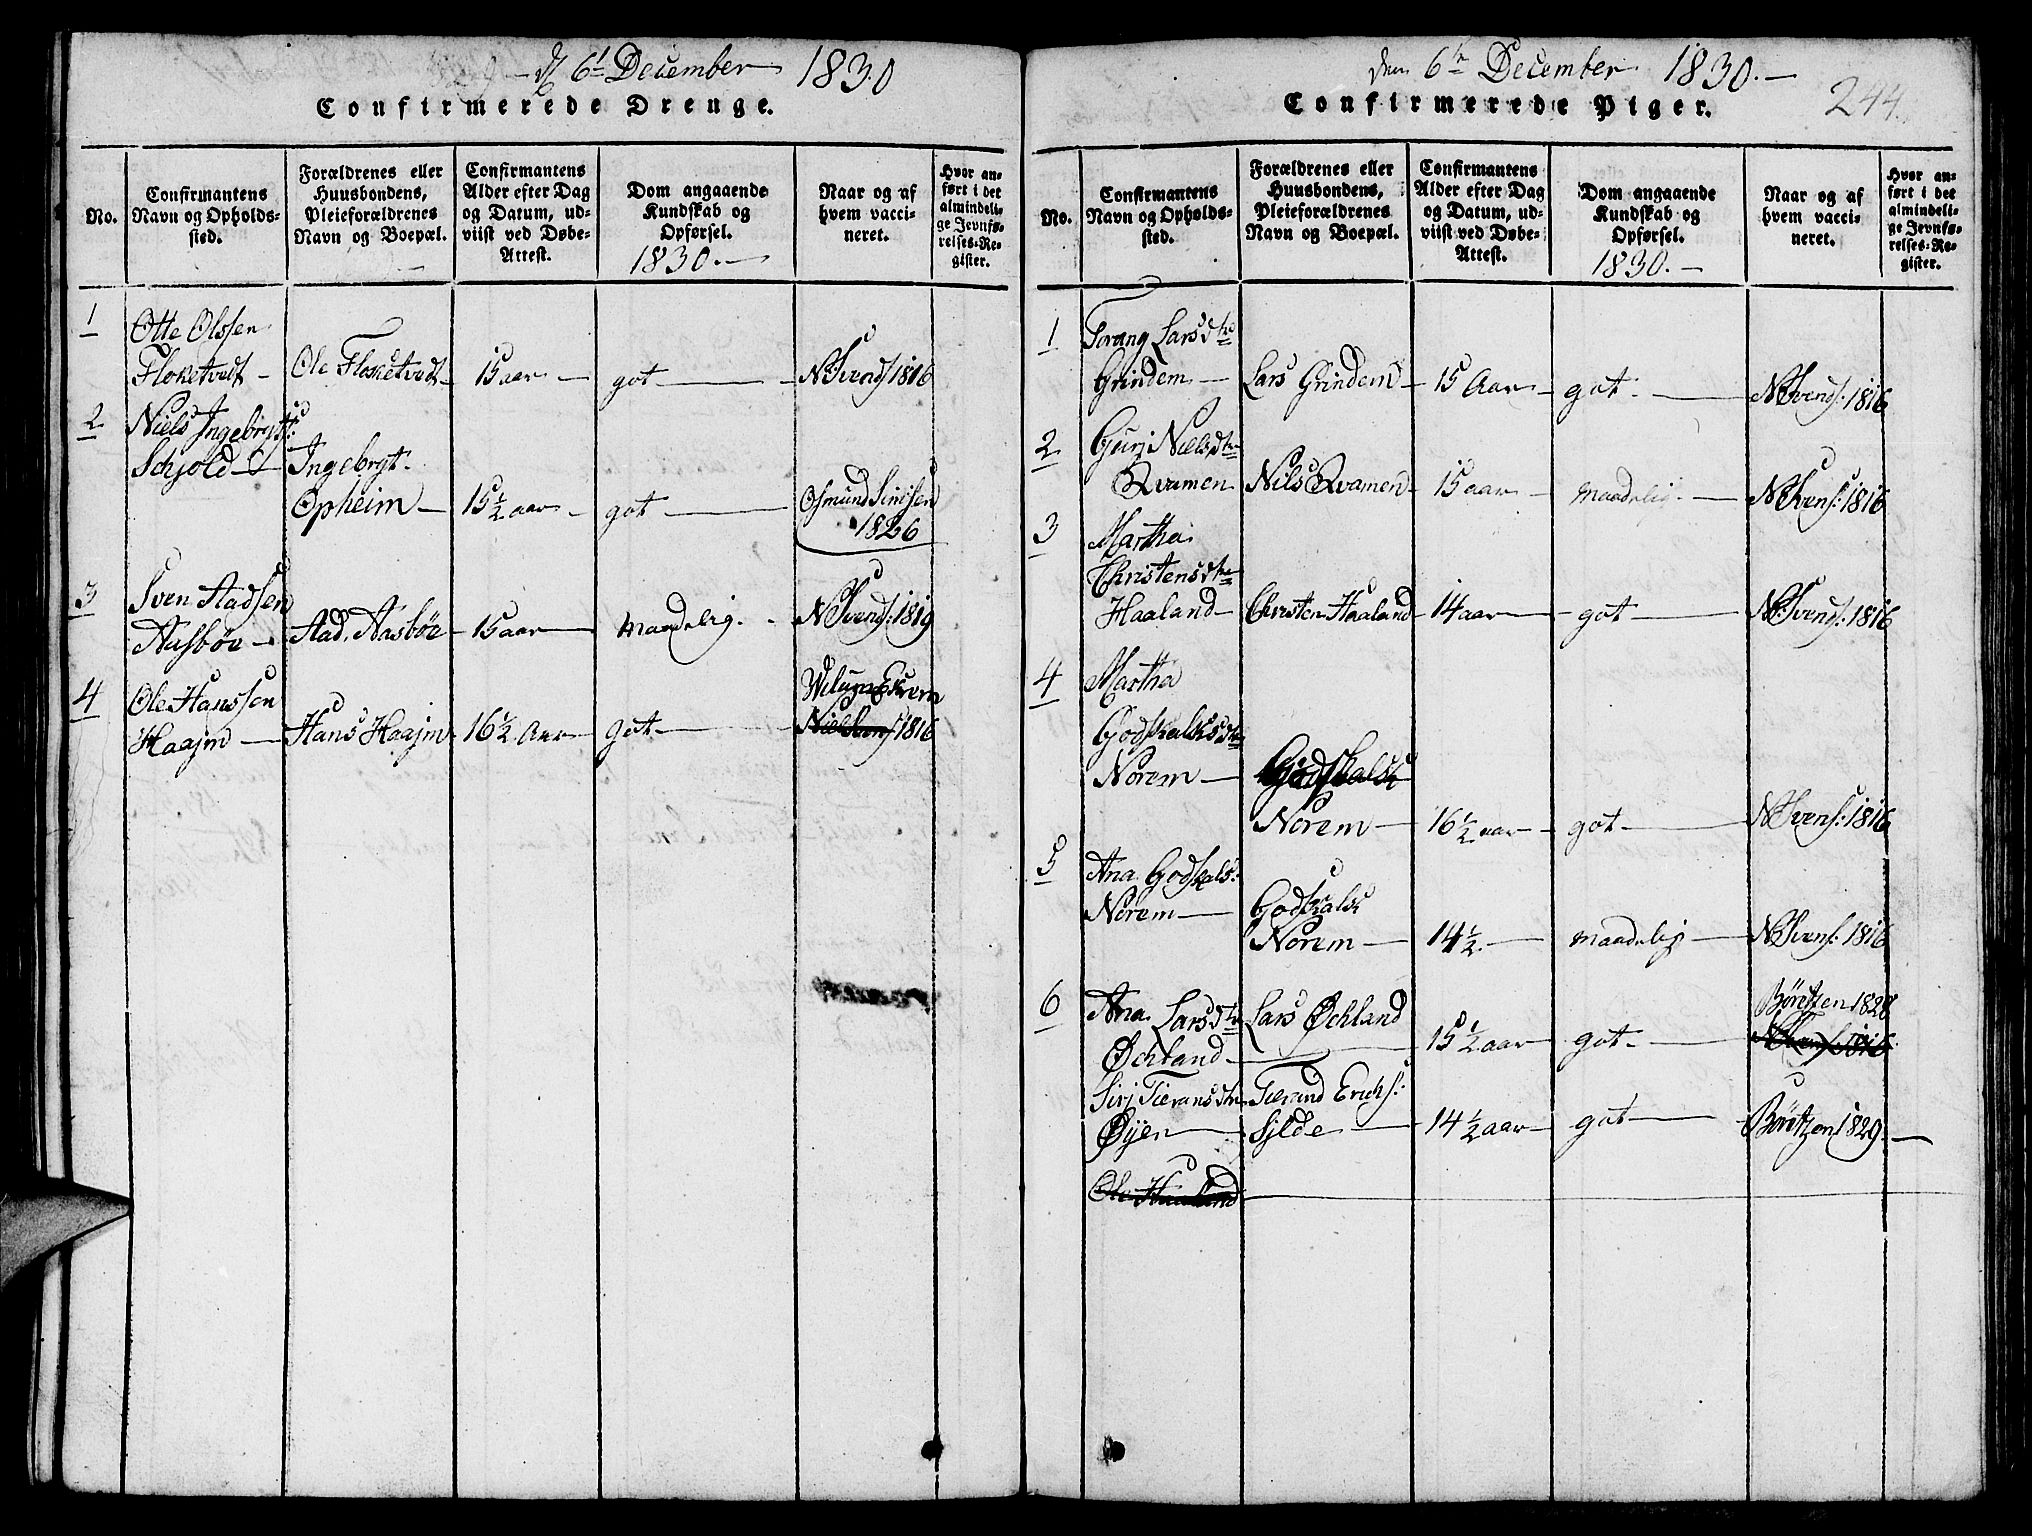 d 6t December 1830
Confirmerede Drenge.
No.
Confirmantens
Navn og Opholds-
sted.
Forældrenes eller
Huusbondens,
Pleieforældrenes
Navn og Boepæl.
Confirmantens
Alder efter Dag
og Datum, ud-
viist ved Døbe-
Attest.
Dom angaaende
Kundskab og
Opførsel.
1830.—
Naar og af
hvem vacci-
neret.
Hvor an-
ført i det
almindeli-
ge Jevnfø-
relses-Re-
gister.
1
Otte Olssen
Floketvedt — Ole Floketvedt — 15 aar — got — N Svends 1816
2
Niels Ingebrygts:
Schjold — Ingebrygt
Opheim — 15 ½ aar — got — Osmund Simsen
1826
3
Sven Aadsen
Aasbøe — Aad. Aasbøe — 15 aar — maadelig. — N Svends: 1819
4
Ole Hanssen
Haajm — Hans Haajm 16 ½ Aar — got — 1816
den 6te December 1830.—
244.
Confirmerede Piger.
No.
Confirmantens
Navn og Opholds-
sted.
Forældrenes eller
Huusbondens,
Pleieforældrenes
Navn og Boepæl.
Confirmantens
Alder efter Dag
og Datum, ud-
viist ved Døbe-
Attest.
Dom angaaende
Kundskab og
Opførsel.
1830.—
Naar og af
hvem vacci-
neret.
Hvor an-
ført i det
almindeli-
ge Jevnfø-
relses-Re-
gister.
1
Torang Larsdtr
Grindem — Lars Grindem — 15 Aar — got — N Svends: 1816
2
Guri Nielsdtr
Qvamen Nils Qvamen — 15 aar — maadelig — N Svens: 1816
3
Martha
Christensdtr
Haaland — Christen Haaland 14 aar — got — N Svends: 1816
4
Martha
Godskalksdtr
Norem — Godskalk
Norem — 16 ½ aar — got — N Svens: 1816
5
Ana Godskals:
Norem — Godskalk
Norem — 14 ½ — maadelig — N Svens: 1816
6
Ana Larsdtr Lars Øchland Børetzen 1828
Øchland — 15 ½ aar — got —
Sirj Tieransdtr Tierand Erichs:
Øyen — Sylde — 14 ½ aar — got — Børetzen 1829 —